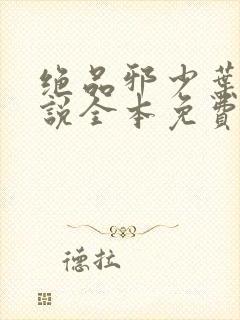 绝品邪少葉
説全本免費
德拉